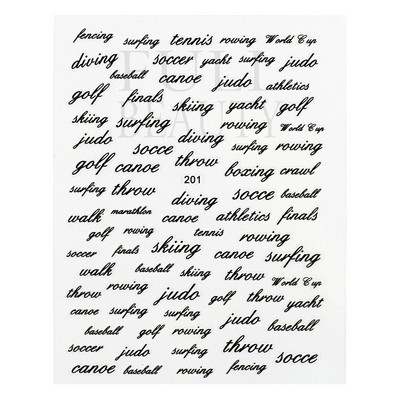 fencing surfing tennis rowing World Cup
diving soccer yacht surfing judo
baseball canoe judo athletics
golf finals skiing yacht golf
skiing surfing rowing World Cup
judo socce diving rowing
golf canoe throw boxing crawl
surfing throw 201 diving socce baseball
walk marathlon canoe athletics finals
golf rowing tennis rowing
soccer finals skiing canoe surfing
walk baseball skiing throw World Cup
rowing judo golf throw yacht
canoe surfing surfing judo
baseball golf rowing baseball
soccer judo surfing throw socce
canoe baseball rowing fencing
FULL
BEAUTY